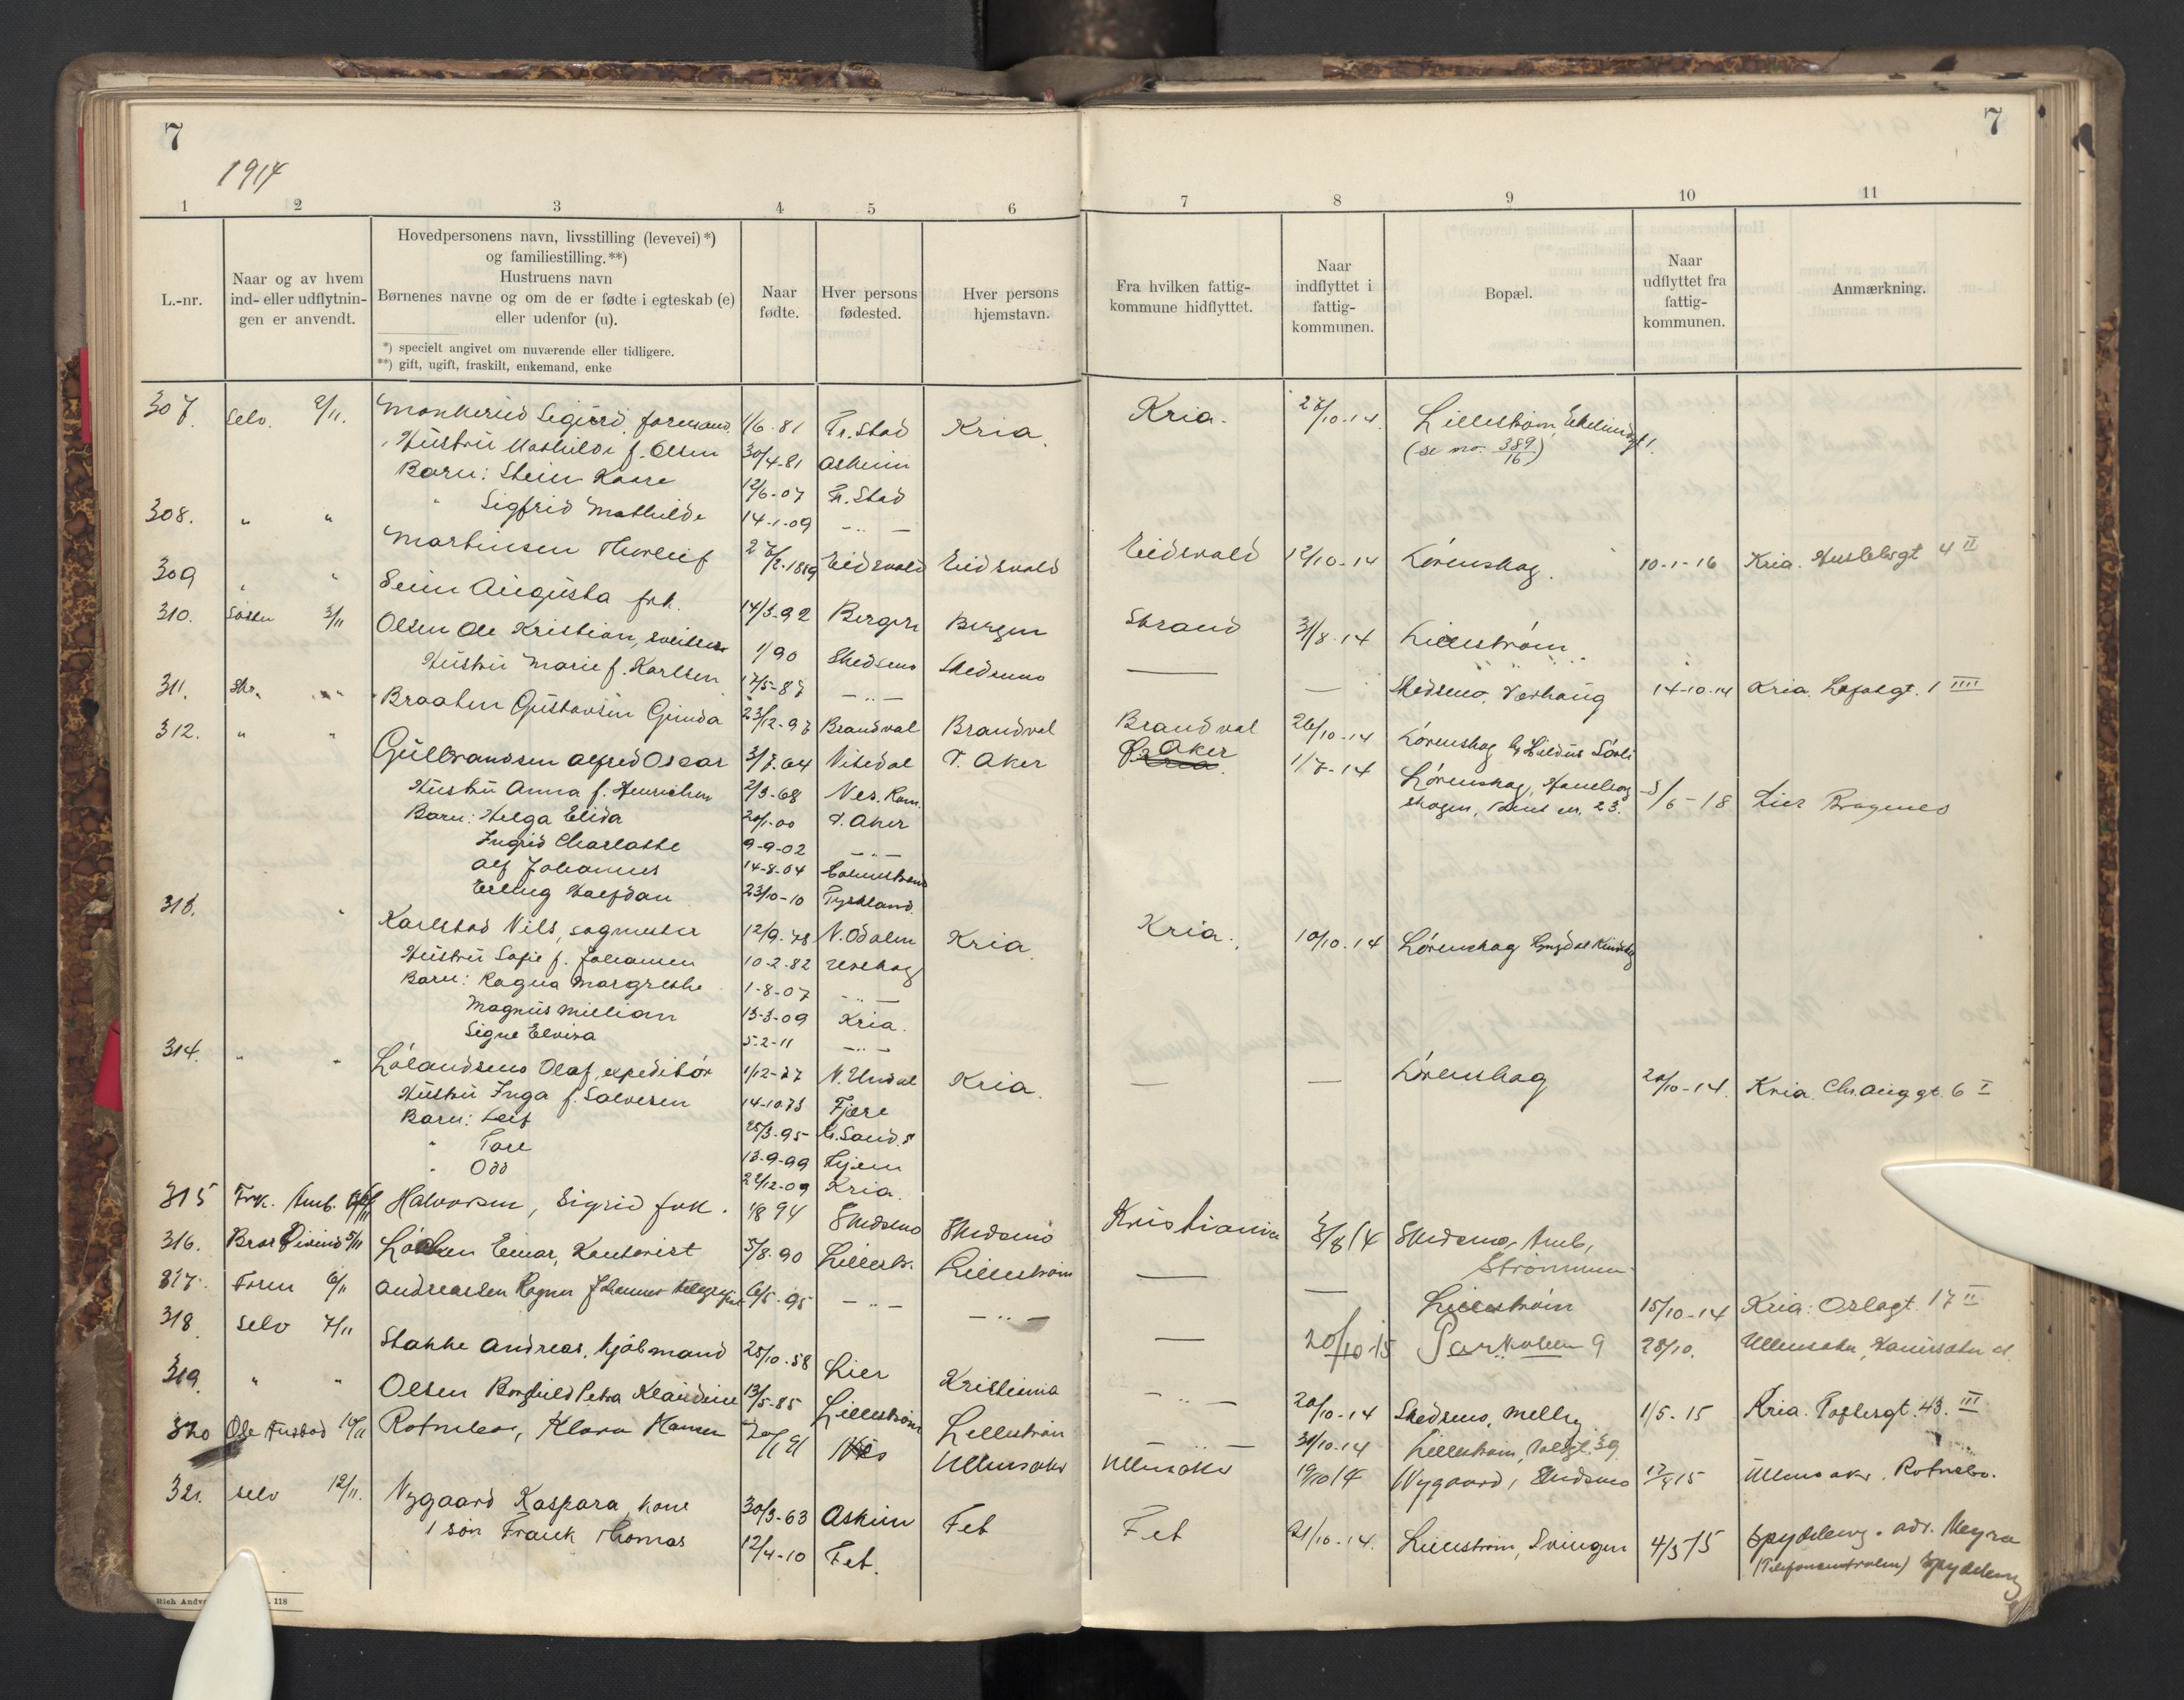 7
7
1914
1 2 3 4 5 6 7 8 9 10 11
L.-nr.
Naar og av hvem
ind- eller udflytnin-
gen er anvendt.
Hovedpersonens navn, livsstilling (levevei) *)
og familiestilling. **)
Hustruens navn
Børnenes navne og om de er fødte i egteskab (e)
eller udenfor (u).
*) specielt angivet om nuværende eller tidligere.
**) gift, ugift, fraskilt, enkemand, enke
Naar
fødte.
Hver persons
fødested.
Hver persons
hjemstavn.
Fra hvilken fattig-
kommune hidflyttet.
Naar
indflyttet i
fattig-
kommunen.
Bopæl.
Naar
udflyttet fra
fattig-
kommunen.
Anmærkning.
307. Selv. 2/11. Sigurd, formand. 1/6-81 Fr.stad Kria. Kria. 27/10-14. Lillestrøm
Hustru Mathilde f. Olsen 30/4-81 Askim (se no. 389/16)
Barn: Stein Kaare 12/6-07 Fr.stad
" Sigfrid Mathilde 14-1-09 -"-
308. " " Martinsen Thorleif 27/2-1889 Eidsvold Eidsvold Eidsvold 12/10-14 Lørenskog. 10-1-16 Kria. 4 II
309 " " Seim Augusta frk. 14/3-92 Bergen Bergen Strand 31/8-14 Lillestrøm
310. Søster 3/11 Olsen Ole Kristian, 1/90 Skedsmo Skedsmo — — Skedsmo, Værhaug 14-10-14 Kria. 1 IIII
Hustru Marie f. Karlsen 17/5-87 -"-
311. " Braaten Gustavsen Gunda 23/12-97 Brandval Brandval Brandval 26/10-14 Lørenskog
312. " " Gulbrandsen Alfred Oscar 3/7-64 V. Aker Aker 1/7-14 Lørenskog,
Hustru Anna f. Henriksen 2/3-68 Nes. Rom. skogen, nr. 23. 5/6-18 Lier Bragenes
Barn: Helga Elida 20/1-00 V. Aker
Ingrid Charlotte 9-9-02 -"-
Alf Johannes 14-8-04
Erling Halfdan 23/10-10 Tyskland.
313. " Karlstad Nils, sagmester 12/9-78 N. Odalen Kria. Kria. 10/10-14 Lørenskog
Hustru Sofie f. Johansen 10-2-82 Urskog
Barn: Ragna Margrethe 1-8-07 -"-
Magnus Milian 13-3-09 Kria.
Signe Elvira 5-2-11 -"-
314. " " Lølandsmo Olaf, expeditør 1/12-77 N. Undal Kria. — — Lørenskog 20/10-14. Kria. Chr. Auggt. 6 I
Hustru Inga f. Salvesen 14-10-73 Fjære
Barn: Leif 25/3-95 Kr.Sand. S
" Tore 13-9-99
" Odd 22/12-09 Kria.
315 Frk. Halvorsen, Sigrid frk. 1/8 94 Skedsmo Skedsmo Kristiania 3/8 14 Skedsmo,
Strømmen
316. Bror 5/11 Einar, Kontorist 5/8-90 Lillestr. Lillestrøm — — Lillestrøm 15/10-14 Kria: Oslogt. 17 II
317. 6/11 Andreassen Ragnar Johannes 6/5-95 -"- -"- — 20/10-15 9 28/10. Ullensaker,
318. Selv 7/11 Stakke Andreas, kjøbmand 25/10-58 Lier Kristiania -"- 20/10-14 Skedsmo, Melby 1/5-15 Kria. 43. III
319. " " Olsen Borghild Petra Klaudine 13/5-85 Lillestrøm Lillestrøm -"- 31/10-14 Lillestrøm, 39
320 Ole 10/11 Klara Hansen 91 Nes Ullensaker Ullensaker 19/10 14 Nygaard, Skedsmo 15 Ullensaker.
321. selv 12/11. Nygaard Kaspara, kone 30/3-63 Askim Fet Fet 21/10-14. Lillestrøm, Svingen 4/3-15 Spydeberg. adr.
1 søn Frank Thomas 12/4-10 Fet. (Telefoncentralen) Spydeberg
118